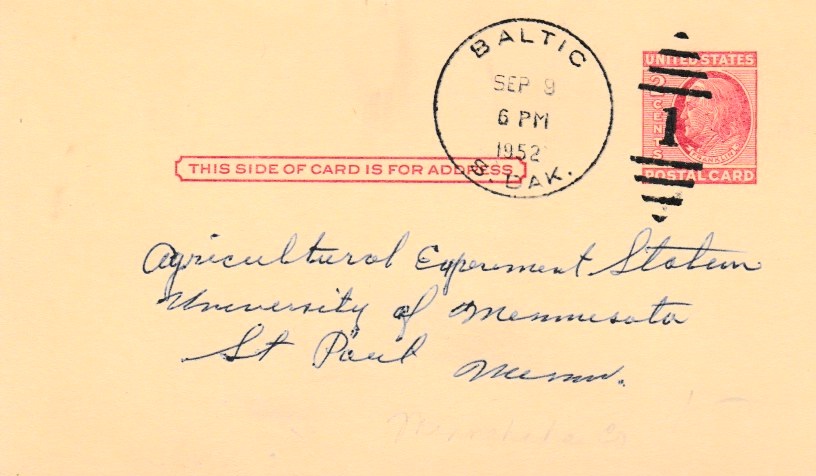 BALTIC
SEP 9
6 PM
1952
S. DAK.
1
UNITED STATES
2 CENTS
FRANKLIN
POSTAL CARD
THIS SIDE OF CARD IS FOR ADDRESS
Agricultural Experiment Station
University of Minnesota
St Paul
Minn.